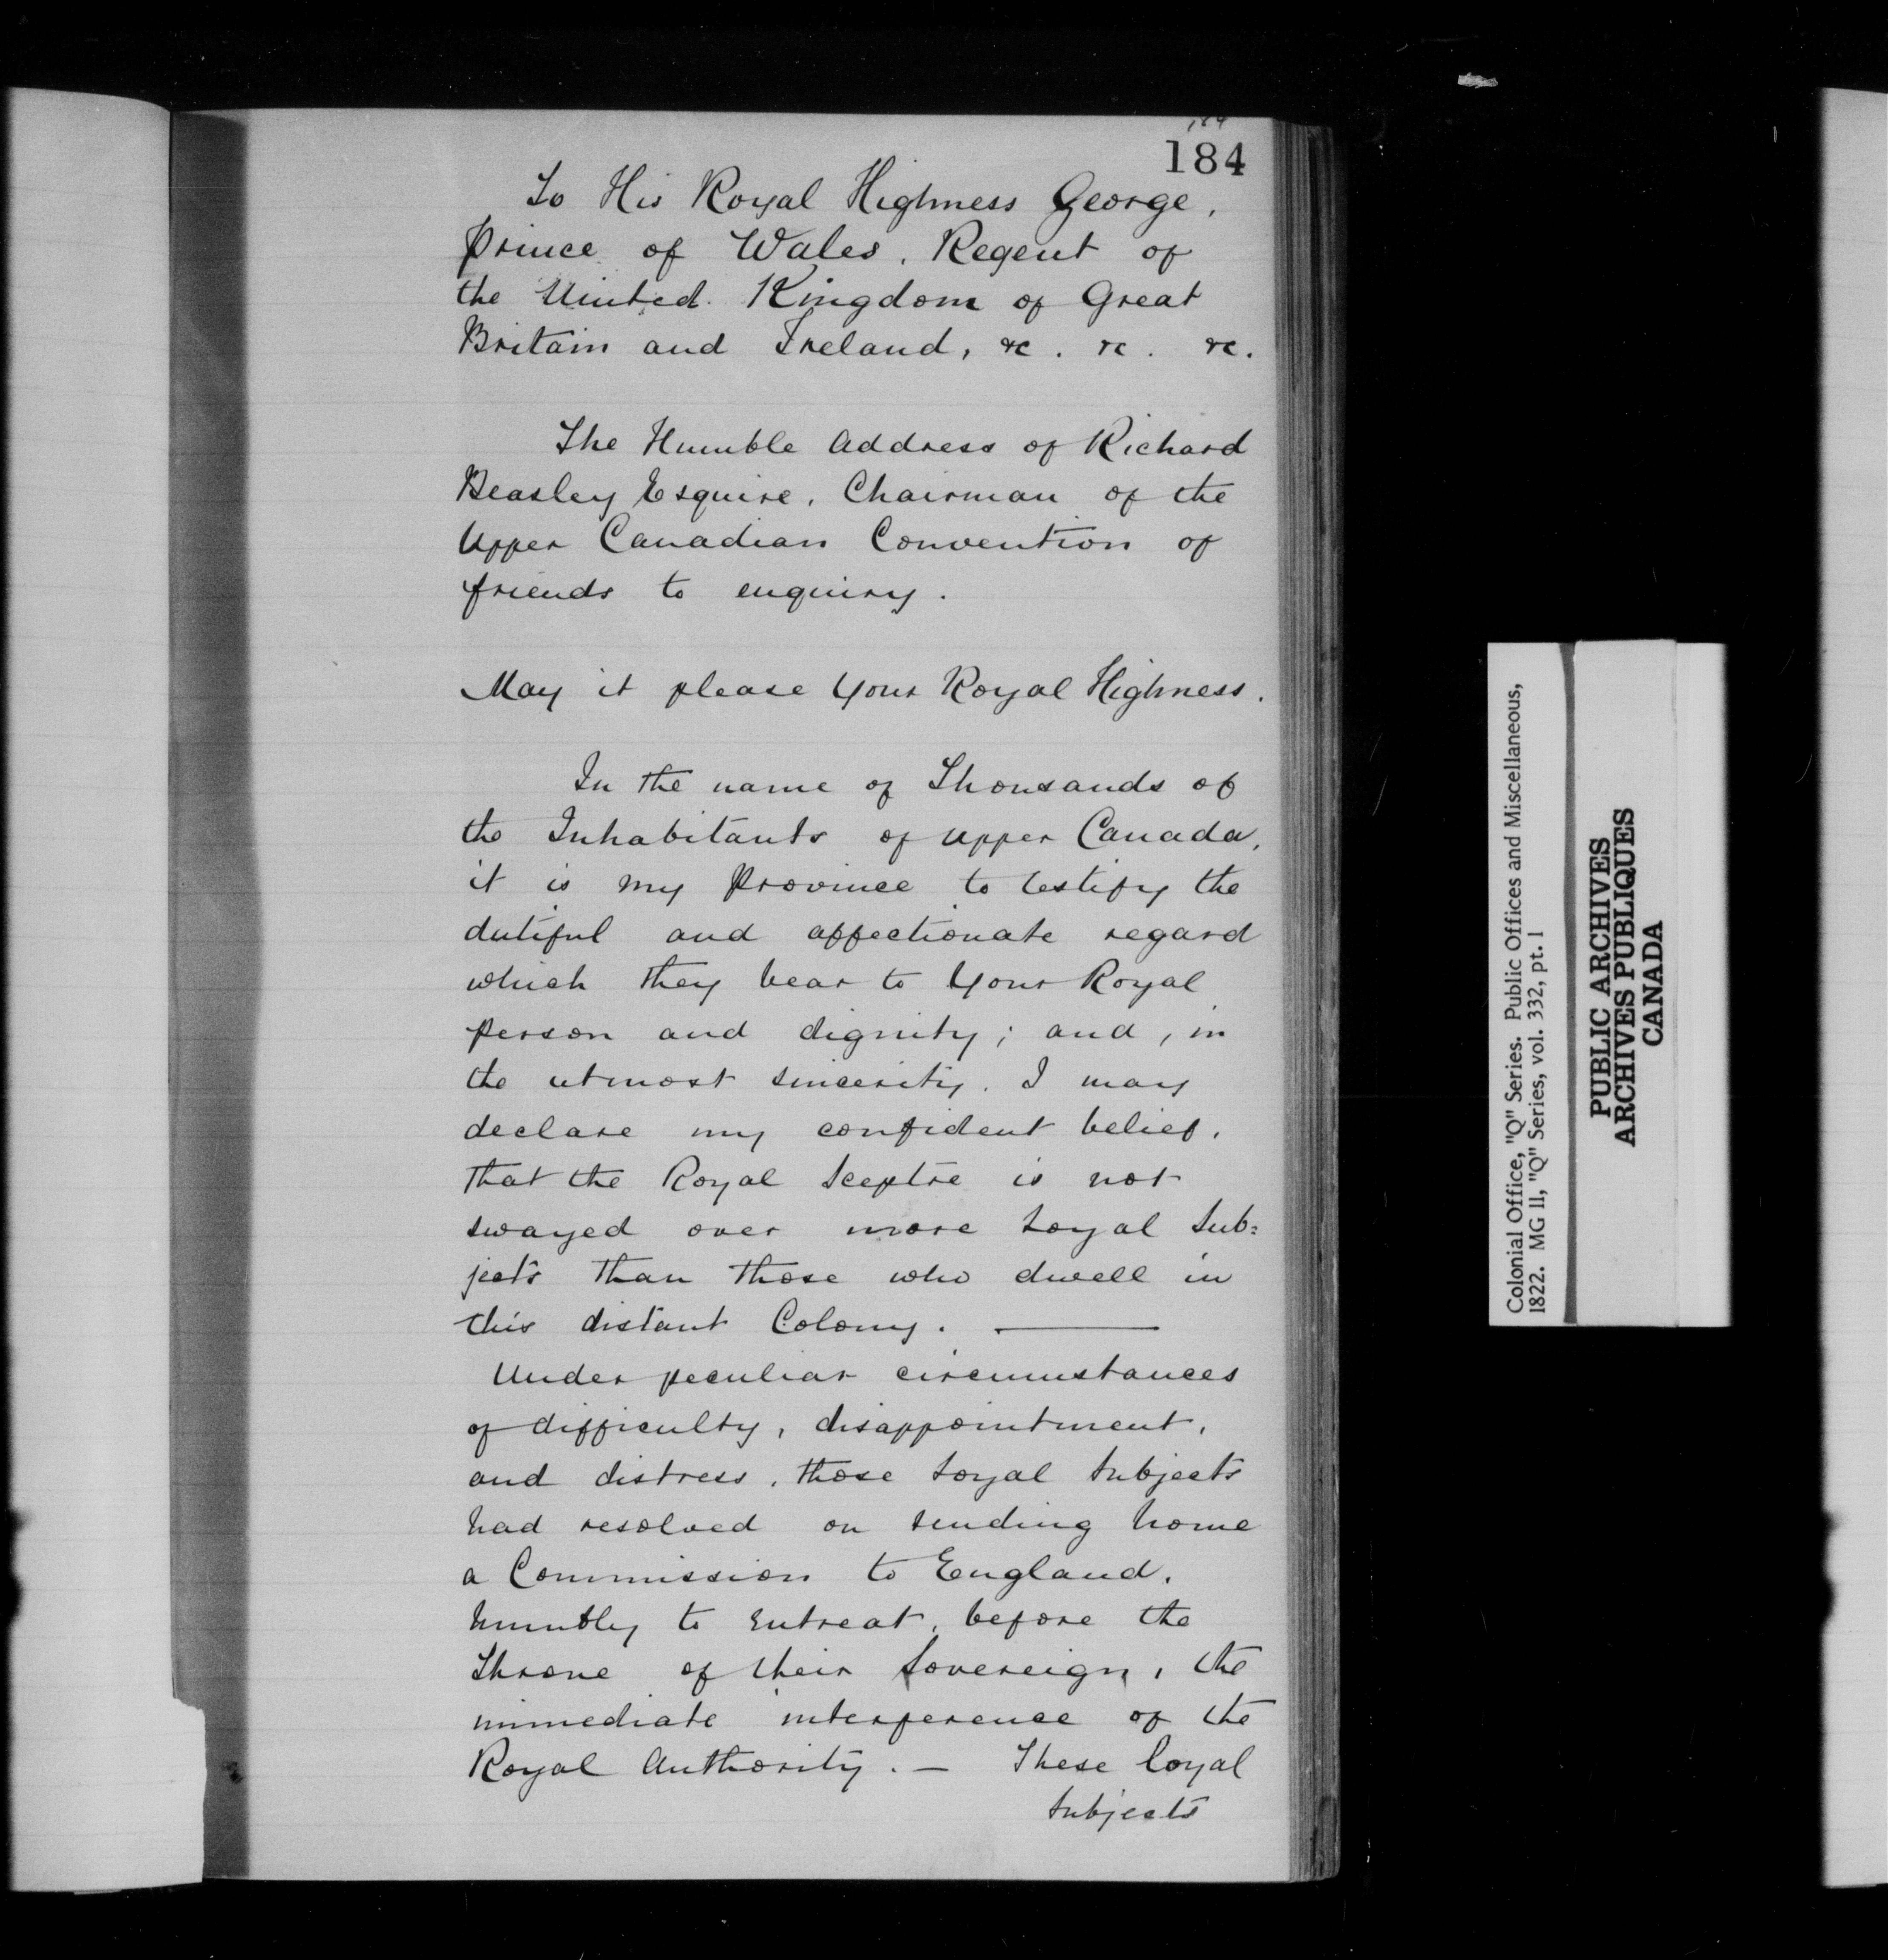 184
184
To His Royal Highness George,
Prince of Wales, Regent of
the United Kingdom of Great
Britain and Ireland, &c. &c. &c.
The Humble Address of Richard
Beasley Esquire, Chairman of the
Upper Canadian Convention of
friends to enquiry.
May it please Your Royal Highness.
In the name of Thousands of
the Inhabitants of Upper Canada,
it is my Province to testify the
dutiful and affectionate regard
which they bear to Your Royal
person and dignity; and, in
the utmost sincerity. I may
declare my confident belief,
that the Royal Sceptre is not
swayed over more Loyal Sub=
jects than those who dwell in
this distant Colony. —
Under peculiar circumstances
of difficulty, disappointment,
and distress, those Loyal Subjects
had resolved on sending home
a Commission to England,
humbly to entreat, before the
Throne of their Sovereign, the
immediate interference of the
Royal Authority. — These loyal
Subjects
Colonial Office, "Q" Series. Public Offices and Miscellaneous,
1822. MG 11, "Q" Series, vol. 332, pt. 1
PUBLIC ARCHIVES
ARCHIVES PUBLIQUES
CANADA